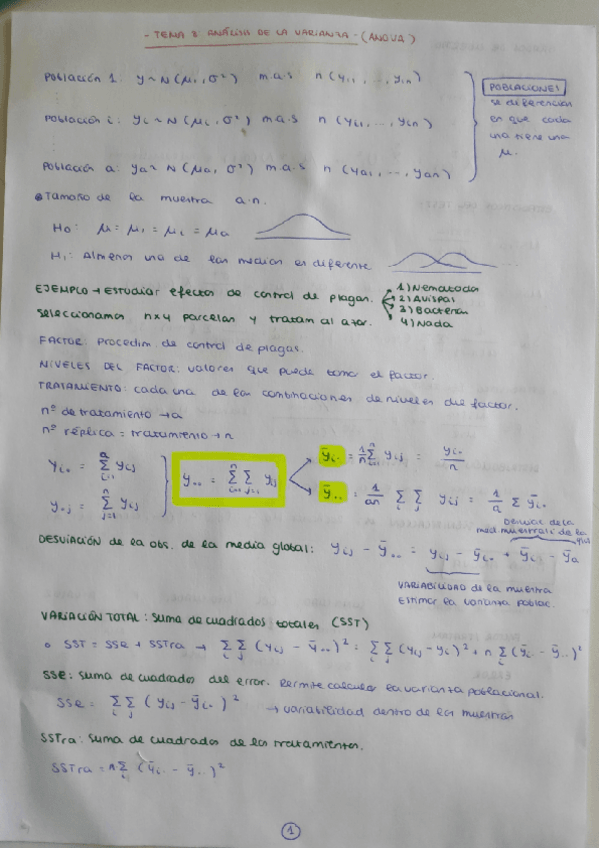 - TEMA 8 ANÁLISIS DE LA VARIANZA - (ANOVA)
Población 1: y ~ N (μ1, σ²) m.a.s n (y11, ..., y1n)
Población i: yi ~ N (μi, σ²) m.a.s n (yi1, ..., yin)
Población a: ya ~ N (μa, σ²) m.a.s n (ya1, ..., yan)
POBLACIONES
se diferencian
en que cada
una tiene una
μ.
Tamaño de la muestra a·n.
H0: μ = μ1 = μi = μa
H1: Almenos una de las medias es diferente
EJEMPLO → Estudiar efectos de control de plagas.
Seleccionamos n×4 parcelas y tratam al azar.
1) Nematodos
2) Avispas
3) Bacterias
4) Nada
FACTOR: procedim. de control de plagas.
NIVELES DEL FACTOR: valores que puede tomar el factor.
TRATAMIENTO: cada una de las combinaciones de niveles del factor.
nº de tratamiento → a
nº réplica = tratamiento → n
yi. = Σ yij
y.j = Σ yij
y.. = Σ Σ yij
ȳi. = 1/n Σ yij = yi./n
ȳ.. = 1/an Σ Σ yij = 1/a Σ ȳi.
Desviac de la
med. muestral i de la
DESVIACIÓN de la obs. de la media global: yij - ȳ.. = yij - ȳi. + ȳi. - ȳa
VARIABILIDAD de la muestra
Estimar la varianza poblac.
VARIACIÓN TOTAL: suma de cuadrados totales (SST)
SST = SSe + SSTra → Σi Σj (yij - ȳ..)² = Σi Σj (yij - yi.)² + n Σi (ȳi. - ȳ..)²
SSe: suma de cuadrados del error. Permite calcular la varianza poblacional.
SSe = Σi Σj (yij - ȳi.)² → variabilidad dentro de las muestras
SSTra: suma de cuadrados de los tratamientos.
SSTra = n Σi (ȳi. - ȳ..)²
1